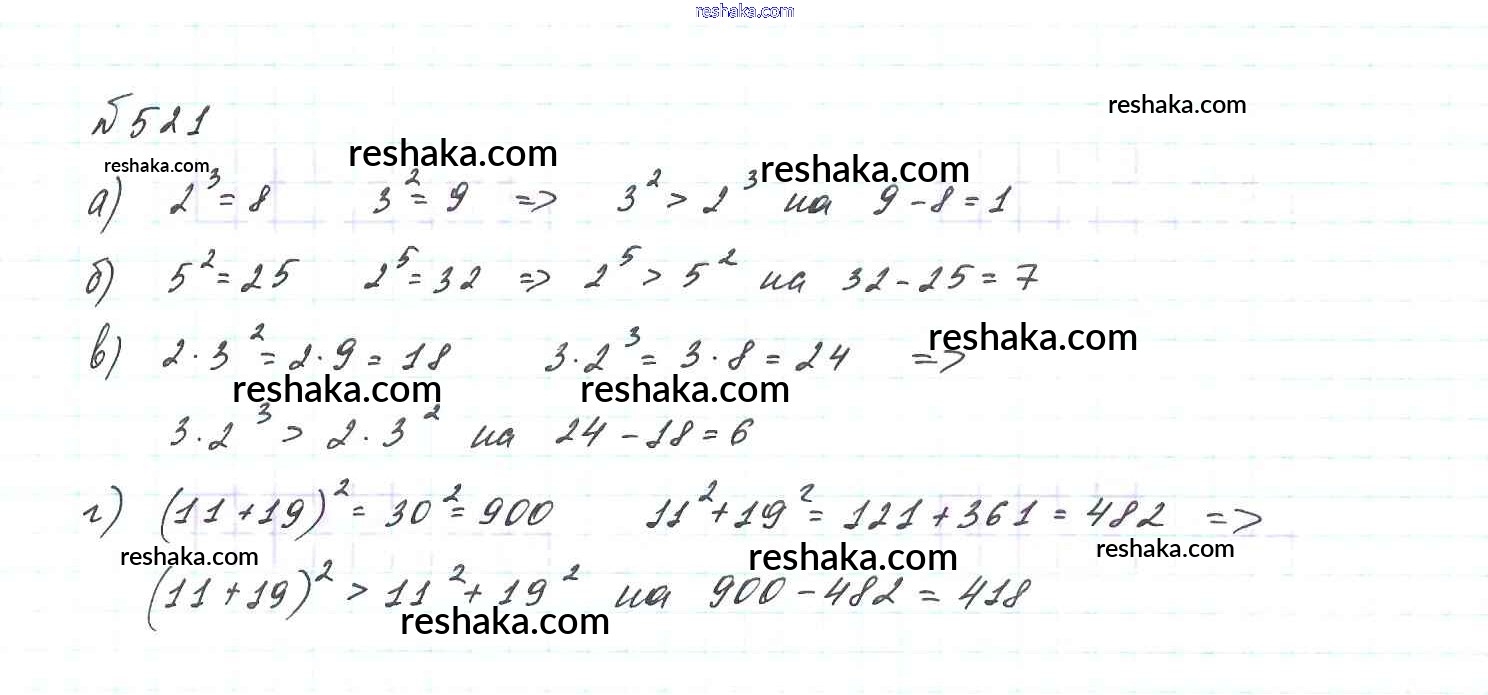 reshaka.com
reshaka.com
№ 521
reshaka.com
reshaka.com
reshaka.com
а) 2³ = 8 3² = 9 => 3² > 2³ на 9 - 8 = 1
б) 5² = 25 2⁵ = 32 => 2⁵ > 5² на 32 - 25 = 7
reshaka.com
в) 2 · 3² = 2 · 9 = 18 3 · 2³ = 3 · 8 = 24 =>
reshaka.com reshaka.com
3 · 2³ > 2 · 3² на 24 - 18 = 6
г) (11 + 19)² = 30² = 900 11² + 19² = 121 + 361 = 482 =>
reshaka.com reshaka.com reshaka.com
(11 + 19)² > 11² + 19² на 900 - 482 = 418
reshaka.com